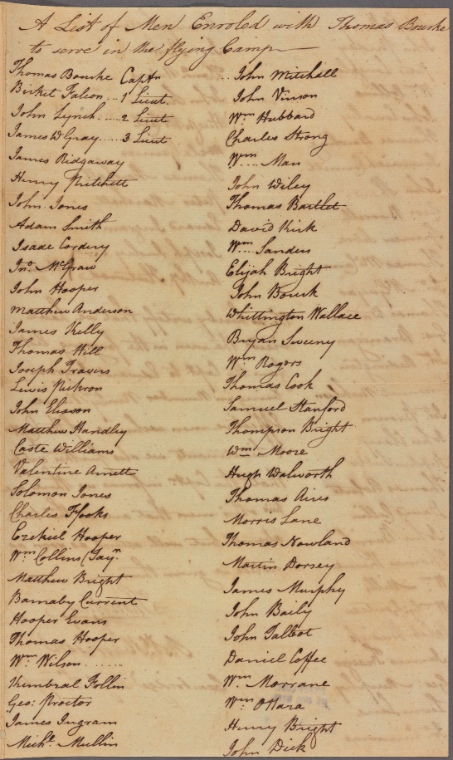 A List of Men Enroled with Thomas Bourke
to serve in the flying Camp
Thomas Bourke Captn
Birket Falcon... 1 Lieut.
John Lynch.... 2 Lieut
James D Gray.... 3 Lieut
James Ridgaway
Henry Pritchett
John Jones
Adam Smith
Isaac Cordery
Jno. McGraw
John Hooper
Matthew Anderson
James Kelly
Thomas Will
Joseph Travers
Lewis
John Eliason
Matthew Handley
Williams
Valentine Arnett
Solomon Jones
Charles Hooks
Ezekiel Hooper
Wm Collins (Tayr.
Matthew Bright
Barnaby Current
Hooper Evans
Thomas Hooper
Wm Wilson
Kimbral Follin
Geo: Proctor
James Ingram
Michl. Mullin
John Mitchell
John Vinson
Wm Hubbard
Charles Strong
Wm Man
John Wiley
Thomas Bartlet
David Kirk
Wm Sanders
Elijah Bright
John Bourk
Whittington Wallace
Bryan Sweeny
Wm Rogers
Thomas Cook
Samuel Stanford
Thompson Bright
Wm Moore
Hugh Walworth
Thomas Aires
Morris Lane
Thomas Nowland
Martin Dorsey
James Murphy
John Baily
John Talbot
Daniel Coffee
Wm Morrane
Wm OHara
Henry Bright
John Dick